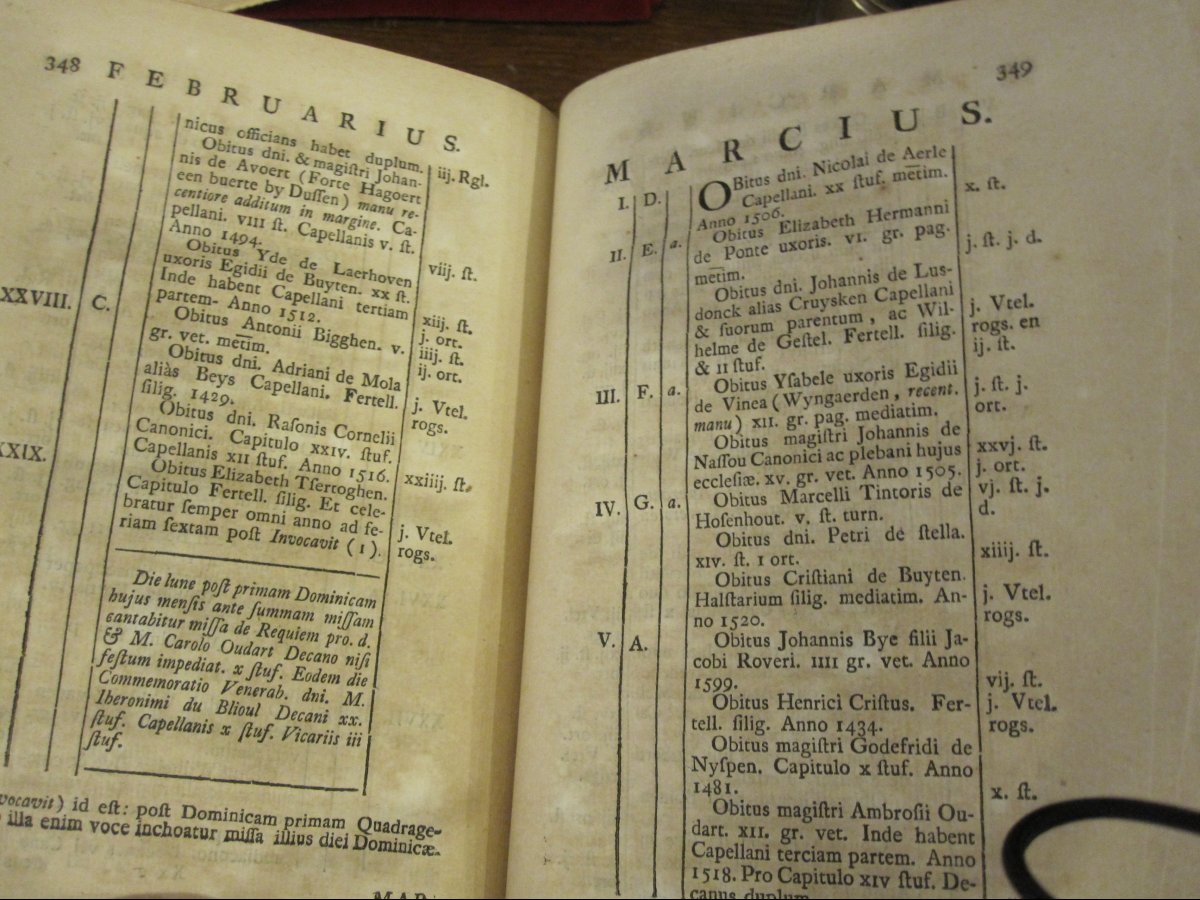 348 FEBRUARIUS.
nicus officians habet duplum. iij. Rgl.
Obitus dni. & magiſtri Johan-
nis de Avoert (Forte Hagoert
een buerte by Duſſen) manu re-
centiore additum in margine. Ca-
pellani. VIII ſt. Capellanis v. ſt. viij. ſt.
Anno 1494.
Obitus Yde de Laerhoven
uxoris Egidii de Buyten. xx ſt.
Inde habent Capellani tertiam xiij. ſt.
XXVIII. C. partem- Anno 1512. j. ort.
Obitus Antonii Bigghen. v. iiij. ſt.
gr. vet. metīm. ij. ort.
Obitus dni. Adriani de Mola
aliàs Beys Capellani. Fertell. j. Vtel.
ſilig. 1429. rogs.
Obitus dni. Raſonis Cornelii
Canonici. Capitulo xxiv. ſtuf.
XXIX. Capellanis XII ſtuf. Anno 1516. xxiiij. ſt.
Obitus Elizabeth Tſertoghen.
Capitulo Fertell. ſilig. Et cele-
bratur ſemper omni anno ad fe- j. Vtel.
riam ſextam poſt Invocavit (1). rogs.
Die lune poſt primam Dominicam
hujus menſis ante ſummam miſſam
cantabitur miſſa de Requiem pro. d.
& M. Carolo Oudart Decano niſi
feſtum impediat. x ſtuf. Eodem die
Commemoratio Venerab. dni. M.
Iheronimi du Blioul Decani xx.
ſtuf. Capellanis x ſtuf. Vicariis iii
ſtuf.
vocavit) id eſt: poſt Dominicam primam Quadrage-
illa enim voce inchoatur miſſa illius diei Dominicæ.
MAR-
349
MARCIUS.
I. D. OBitus dni. Nicolai de Aerle
Capellani. xx ſtuf. metīm. x. ſt.
Anno 1506.
II. E. a. Obitus Elizabeth Hermanni
de Ponte uxoris. VI. gr. pag. j. ſt. j. d.
metīm.
Obitus dni. Johannis de Luſ-
donck alias Cruysken Capellani
& ſuorum parentum, ac Wil- j. Vtel.
helme de Geſtel. Fertell. ſilig. rogs. en
& II ſtuf. ij. ſt.
III. F. a. Obitus Yſabele uxoris Egidii
de Vinea (Wyngaerden, recent. j. ſt. j.
manu) XII. gr. pag. mediatim. ort.
Obitus magiſtri Johannis de
Naſſou Canonici ac plebani hujus xxvj. ſt.
eccleſiæ. xv. gr. vet. Anno 1505. j. ort.
IV. G. a. Obitus Marcelli Tintoris de vj. ſt. j.
Hoſenhout. v. ſt. turn. d.
Obitus dni. Petri de ſtella.
xIV. ſt. I ort. xiiij. ſt.
Obitus Criſtiani de Buyten.
Halſtarium ſilig. mediatim. An- j. Vtel.
no 1520. rogs.
V. A. Obitus Johannis Bye filii Ja-
cobi Roveri. IIII gr. vet. Anno
1599. vij. ſt.
Obitus Henrici Criſtus. Fer- j. Vtel.
tell. ſilig. Anno 1434. rogs.
Obitus magiſtri Godefridi de
Nyſpen. Capitulo x ſtuf. Anno
1481. x. ſt.
Obitus magiſtri Ambroſii Ou-
dart. XII. gr. vet. Inde habent
Capellani terciam partem. Anno
1518. Pro Capitulo XIV ſtuf. De-
canus duplum.